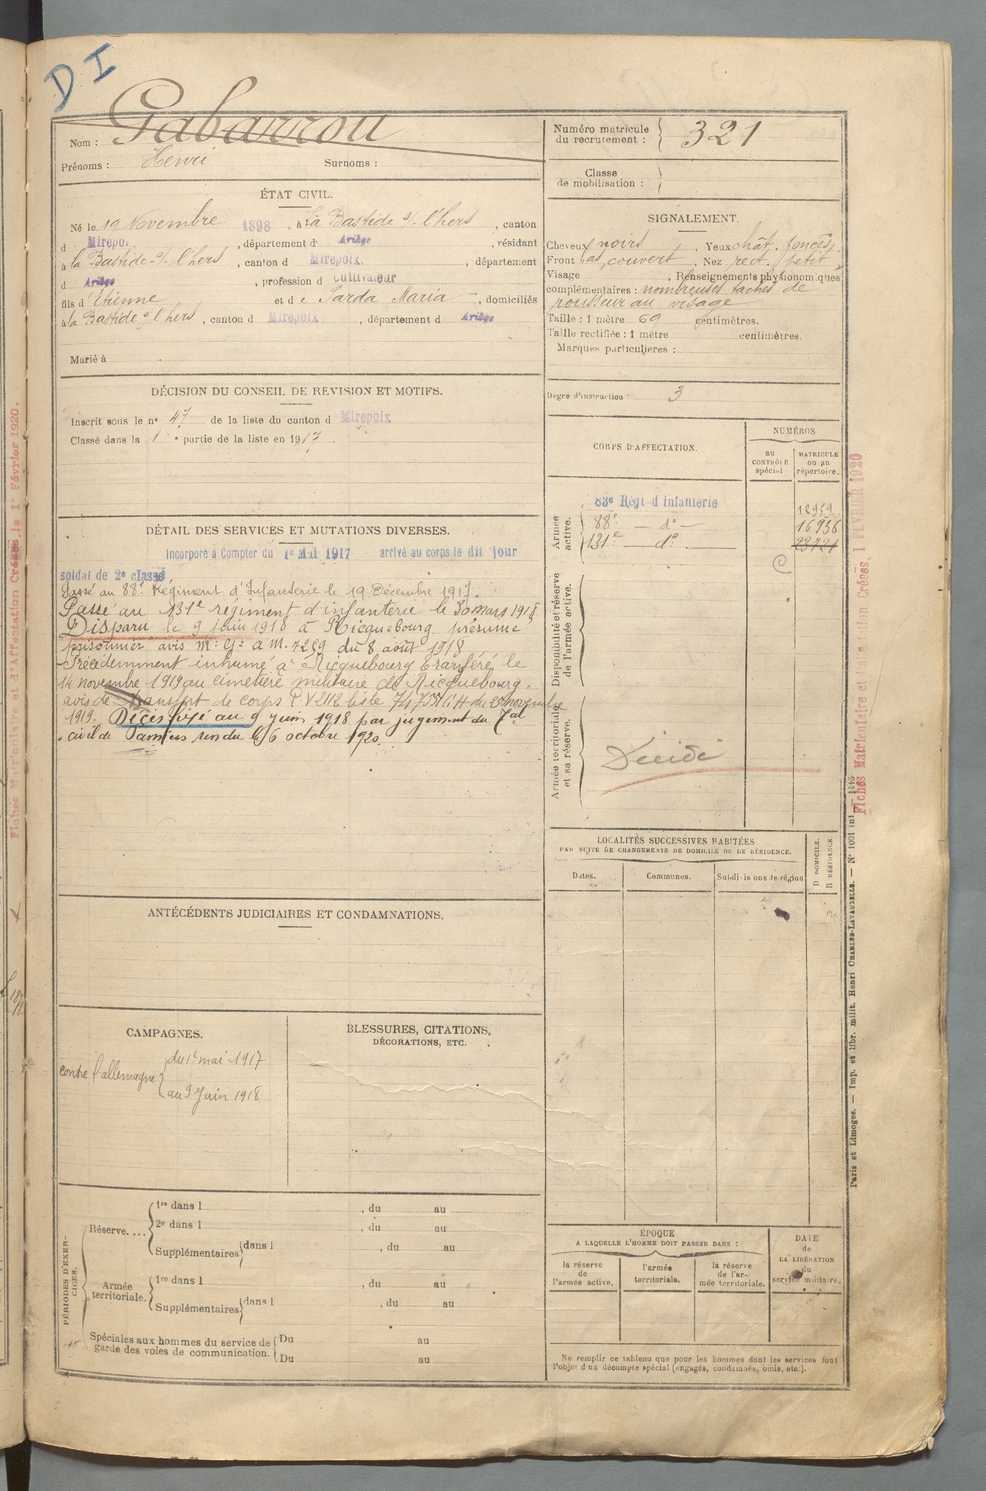 DI
Nom : Gabarrou
Prénoms : Henri Surnoms :
Numéro matricule
du recrutement : 321
Classe
de mobilisation :
ÉTAT CIVIL.
Né le 19 Novembre 1898, à La Bastide s/ l'hers, canton
d Mirepo. , département d' Ariège , résidant
à la Bastide s/ l'hers, canton d Mirepoix. département
d Ariège , profession d Cultivateur
fils d'Etienne et de Sarda Maria , domiciliés
à la Bastide s/ l'hers, canton d Mirepoix , département d Ariège
Marié à
SIGNALEMENT.
Cheveux noirs , Yeux chât. foncés,
Front bas, couvert . Nez rect. petit
Visage , Renseignements physionomiques
complémentaires : nombreuses taches de
rousseur au visage
Taille : 1 mètre 69 centimètres.
Taille rectifiée : 1 mètre centimètres.
Marques particulières :
Degré d'instruction : 3
DÉCISION DU CONSEIL DE REVISION ET MOTIFS.
Inscrit sous le n° 47 de la liste du canton d Mirepoix
Classé dans la 1e partie de la liste en 1917.
DÉTAIL DES SERVICES ET MUTATIONS DIVERSES.
Incorporé à Compter du 1er Mai 1917 arrivé au corps le dit jour
soldat de 2e classe,
Passé au 88e Régiment d'Infanterie le 19 Décembre 1917.
Passé au 131e régiment d'infanterie le 30 mars 1918
Disparu le 9 juin 1918 à Ricquebourg présumé
prisonnier avis M. G. a M. 7259 du 8 août 1918
Précédemment inhumé à Ricquebourg transféré le
14 novembre 1919 au cimetière militaire de Ricquebourg.
avis de transfert de corps
1919. Décès fixé au 9 juin 1918 par jugement du Tal
civil de Pamiers rendu le 6 octobre 1920
CORPS D'AFFECTATION.
NUMÉROS
AU
CONTRÔLE
spécial
MATRICULE
ou au
répertoire.
Armée
active.
83e Régt d Infanterie 12959
88e — d° — 16956
131e — d°
Disponibilité et réserve
de l'armée active.
Armée territoriale
et sa réserve.
Décédé
LOCALITÉS SUCCESSIVES HABITÉES
PAR SUITE DE CHANGEMENTS DE DOMICILE OU DE RÉSIDENCE.
Dates. Communes. Subdivisions de région
D DOMICILE.
R RÉSIDENCE
ANTÉCÉDENTS JUDICIAIRES ET CONDAMNATIONS.
CAMPAGNES.
contre l'allemagne
du 1er mai 1917
au 9 Juin 1918
BLESSURES, CITATIONS,
DÉCORATIONS, ETC.
PÉRIODES D'EXER-
CICES.
Réserve....
1re dans l , du au
2e dans l , du au
Supplémentaires dans l , du au
Armée
territoriale.
1re dans l , du au
Supplémentaires dans l , du au
Spéciales aux hommes du service de
garde des voies de communication.
Du au
Du au
ÉPOQUE
A LAQUELLE L'HOMME DOIT PASSER DANS :
la réserve
de
l'armée active.
l'armée
territoriale.
la réserve
de l'ar-
mée territoriale.
DATE
de
LA LIBÉRATION
du
service militaire.
Ne remplir ce tableau que pour les hommes dont les services font
l'objet d'un décompte spécial (engagés, condamnés, omis, etc.).
Fiches Matriculaire et d'Affectation Créées le 1er Février 1920.
Fiches Matriculaire et d'Affectation Créées, 1 FÉVRIER 1920
Paris et Limoges. — Imp. et libr. milit. Henri CHARLES-LAVAUZELLE. — N° 1001